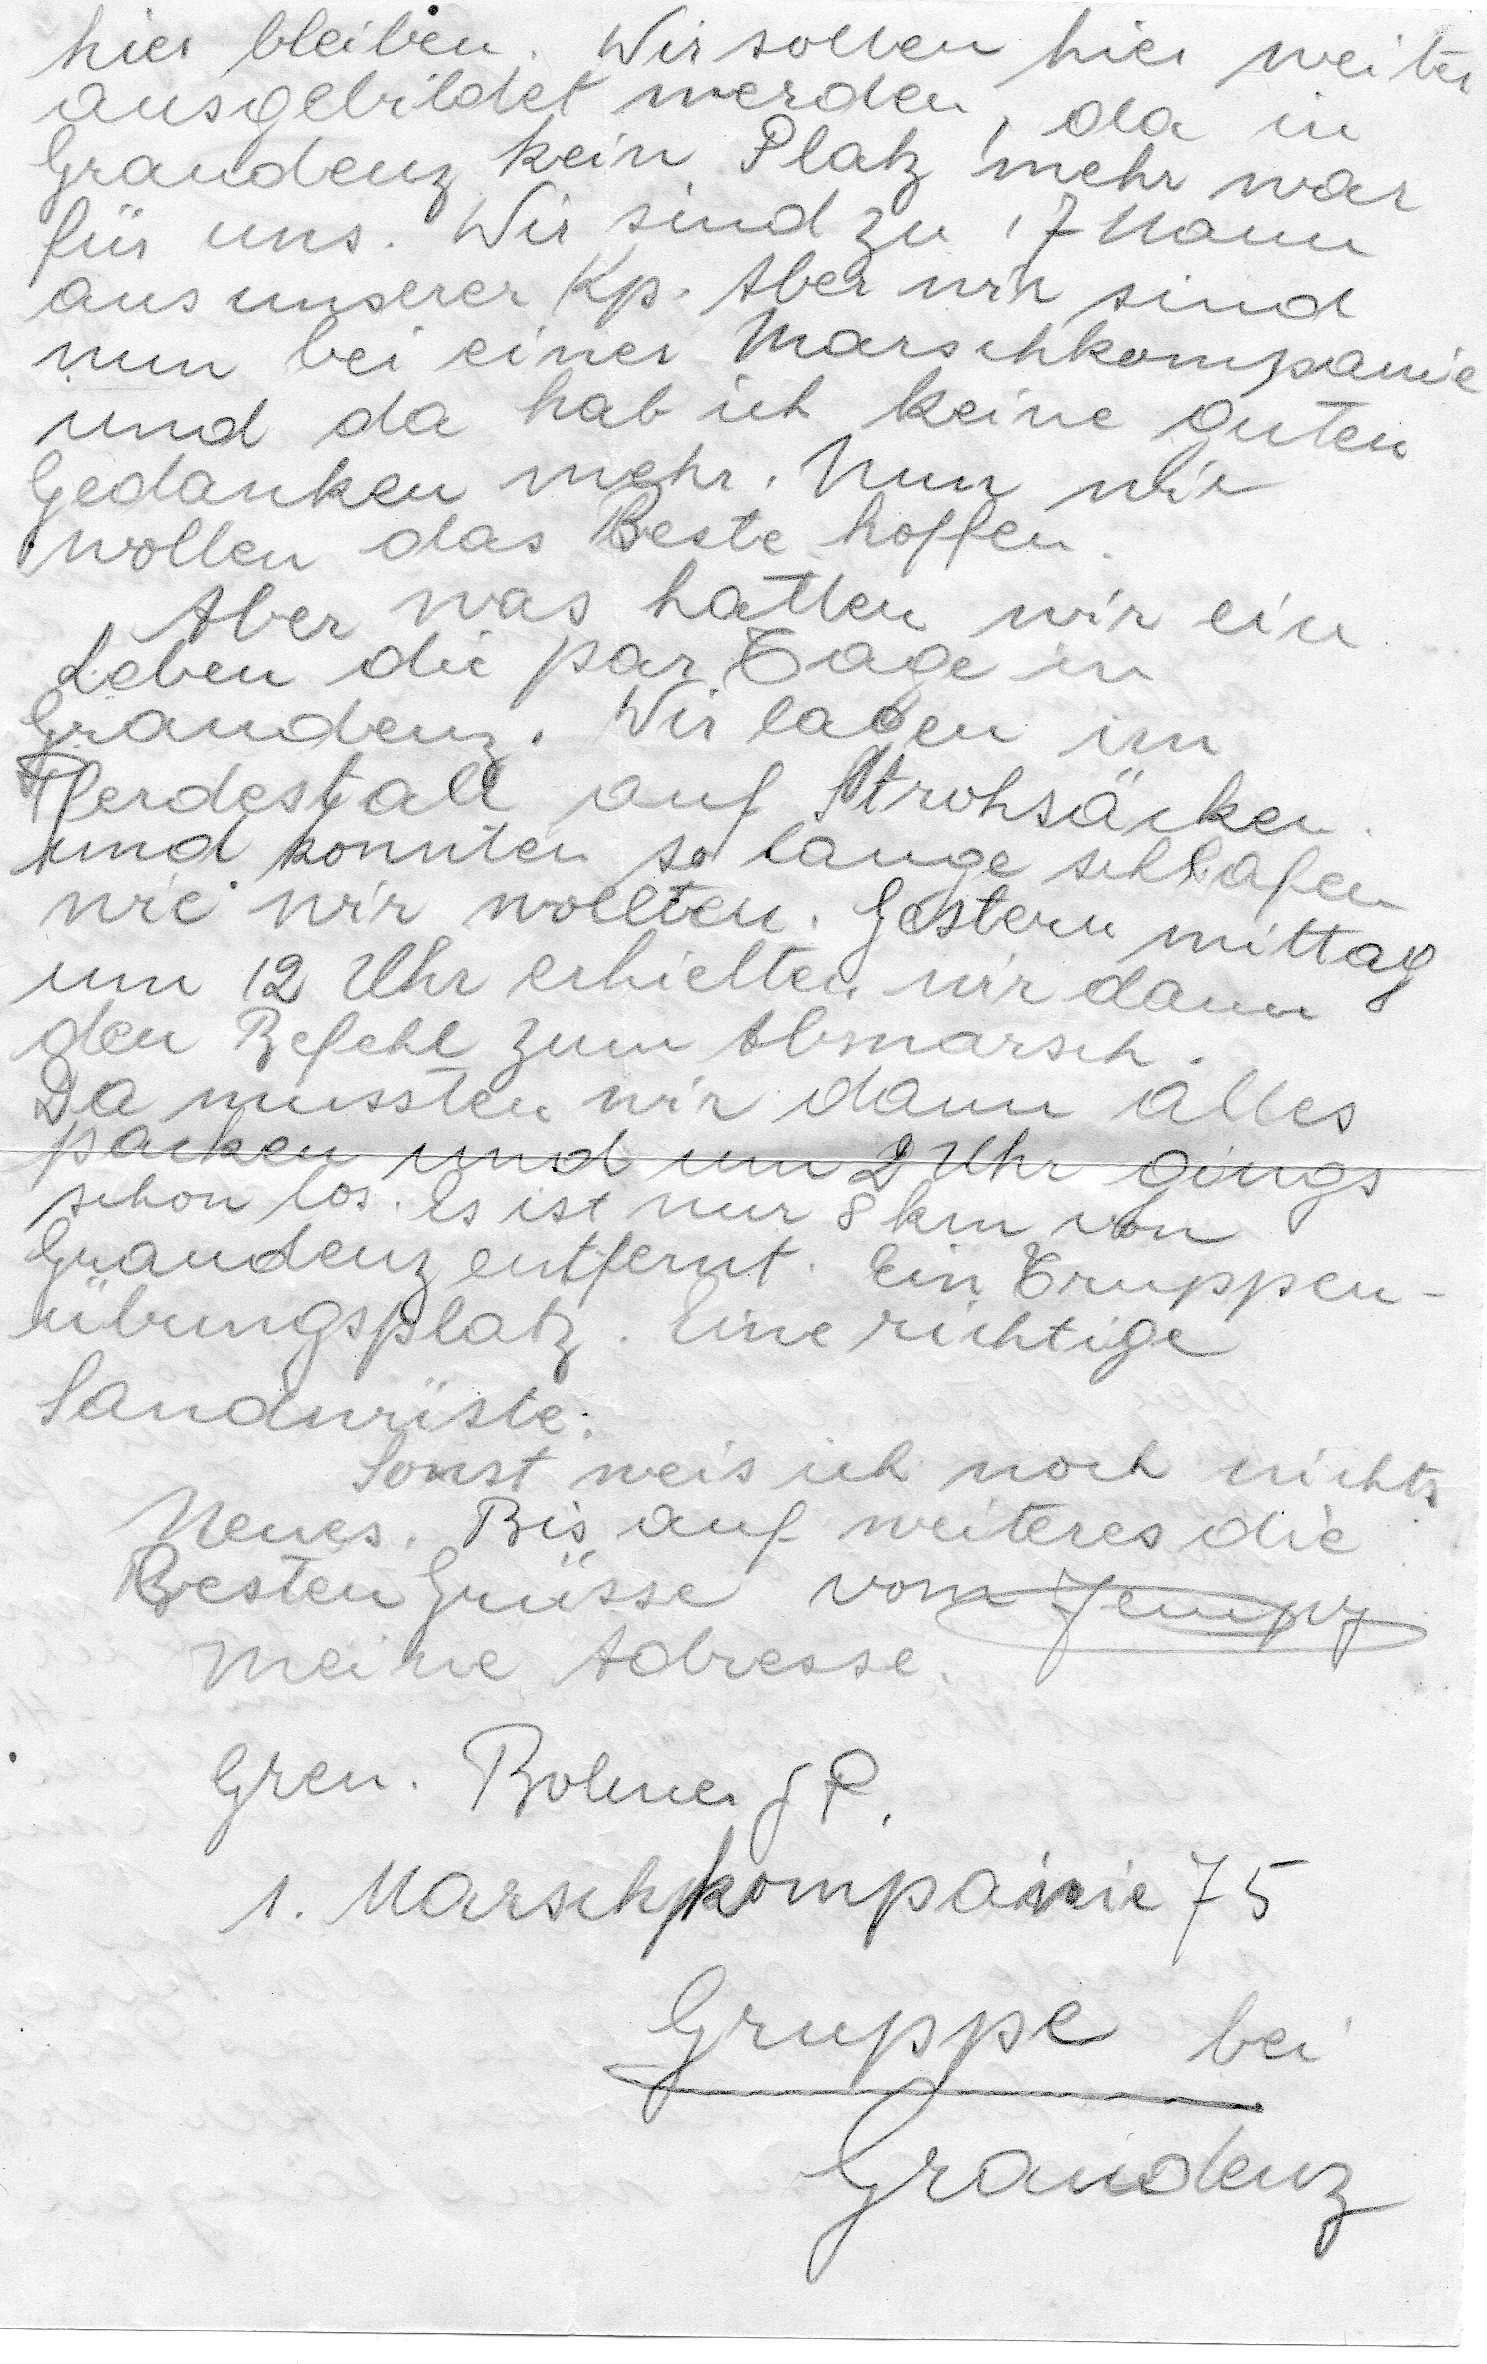 hier bleiben. Wir sollen hier weiter
ausgebildet werden, da in
Graudenz kein Platz mehr war
für uns. Wir sind zu 17 Mann
aus unserer Kp. Aber wir sind
nun bei einer Marschkompanie
und da hab ich keine guten
Gedanken mehr. Nun wir
wollen das Beste hoffen.
Aber was hatten wir ein
Leben die par Tage in
Graudenz. Wir lagen im
Pferdestall auf Strohsäcken
und konnten so lange schlafen
wie wir wollten. Gestern mittag
um 12 Uhr erhielten wir dann
den Befehl zum Abmarsch.
Da mussten wir dann alles
packen und um 2 Uhr gings
schon los. Es ist nur 8 km von
Graudenz entfernt. Ein Truppen-
übungsplatz. Eine richtige
Sandwüste.
Sonst weis ich noch nichts
Neues. Bis auf weiteres die
Besten Grüsse vom Jempy
Meine Adresse.
Gren. J P.
1. Marschkompanie 75
Gruppe bei
Graudenz